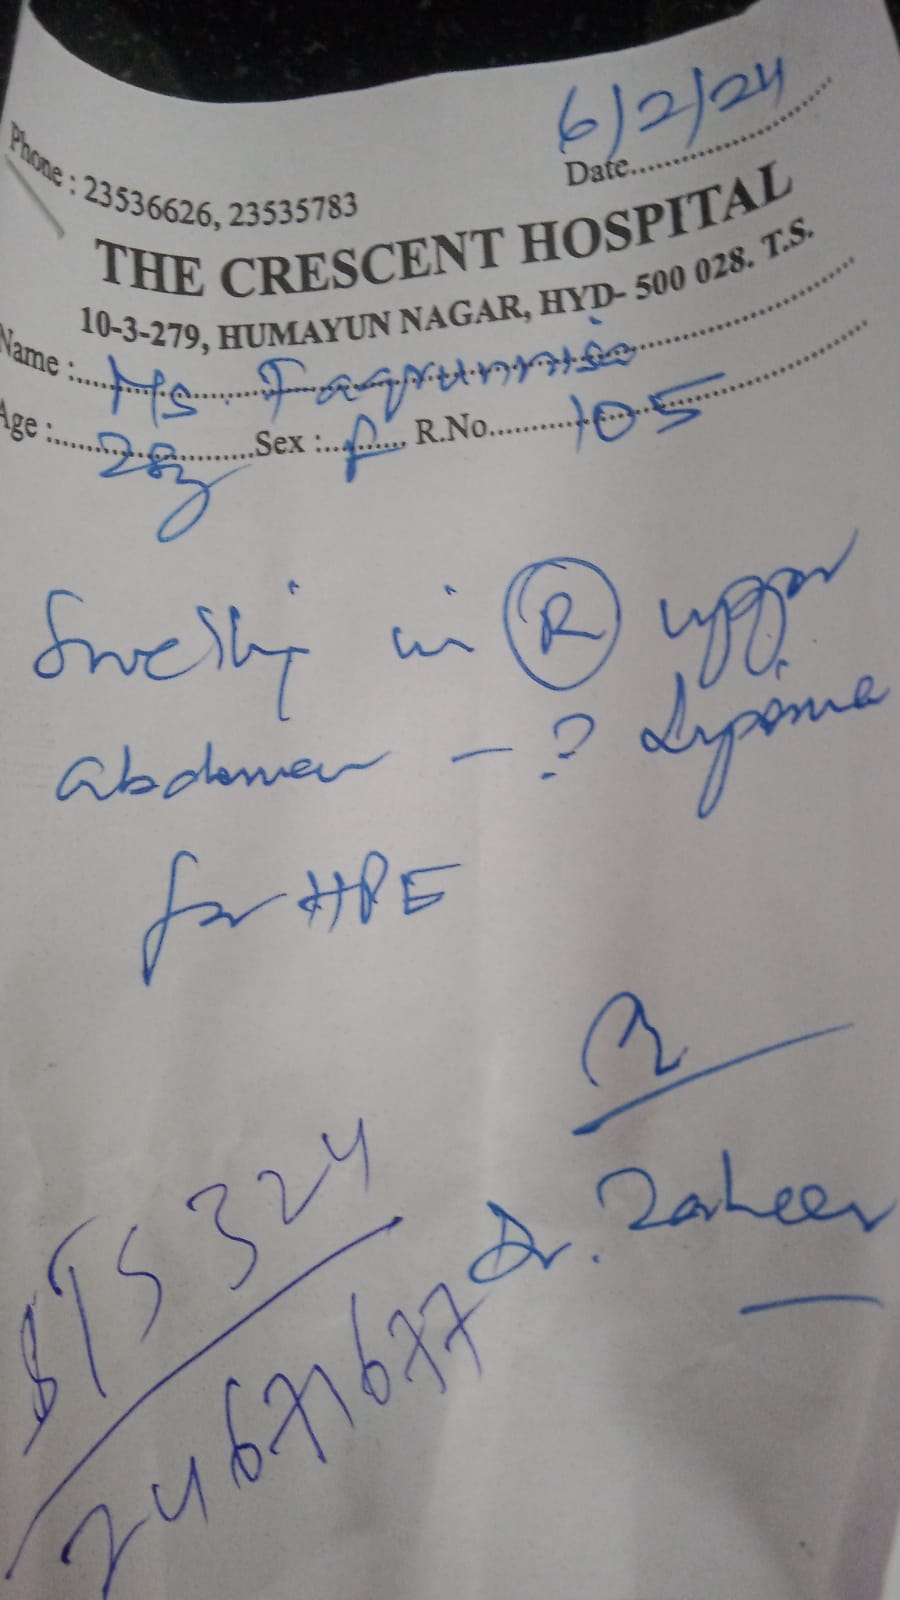 6/2/24
Date
Phone : 23536626, 23535783
THE CRESCENT HOSPITAL
10-3-279, HUMAYUN NAGAR, HYD- 500 028. T.S.
Name : Ms. Taqrunnisa
Age : 28y Sex : F R.No. 105
Swelling in R upper
abdomen - ? Lipoma
for HPE
Dr. Zaheer
324
24671677